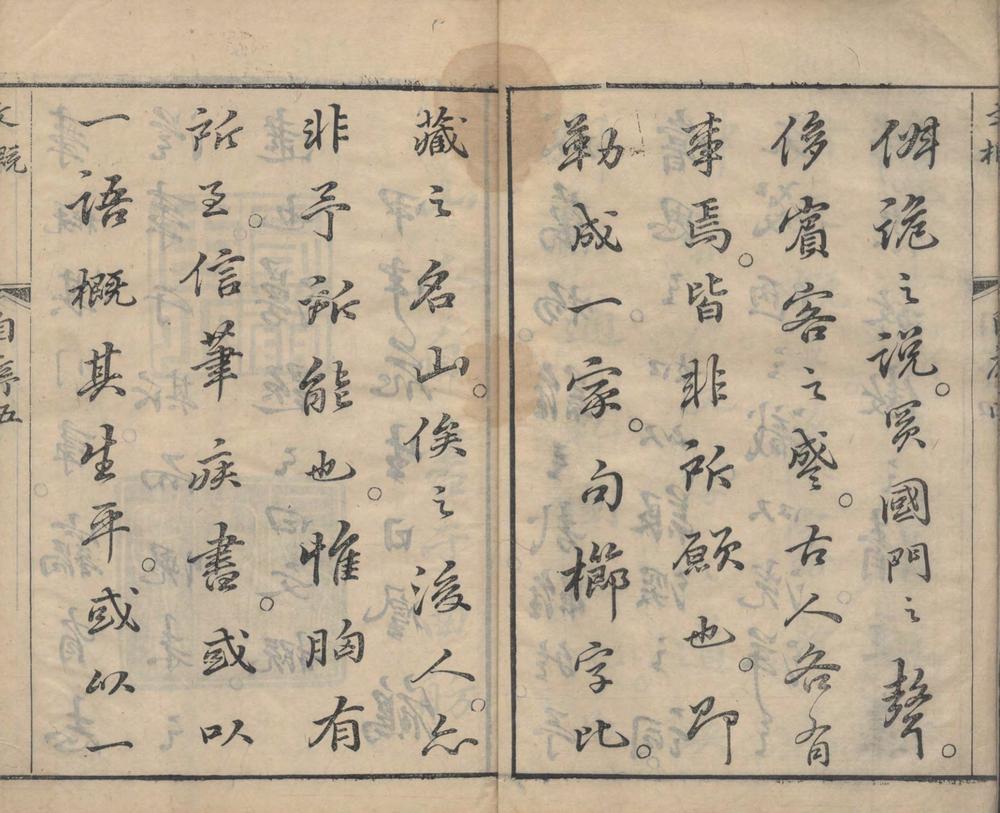 俶詭之説。買國門之聲。
侈賓客之盛。古人各有
事焉。皆非所願也。即
勒成一家。句櫛字比。
藏之名山。俟之後人。亦
非予所能也。惟胸有
所至。信筆疾書。或以
一語概其生平。或以一
自序五